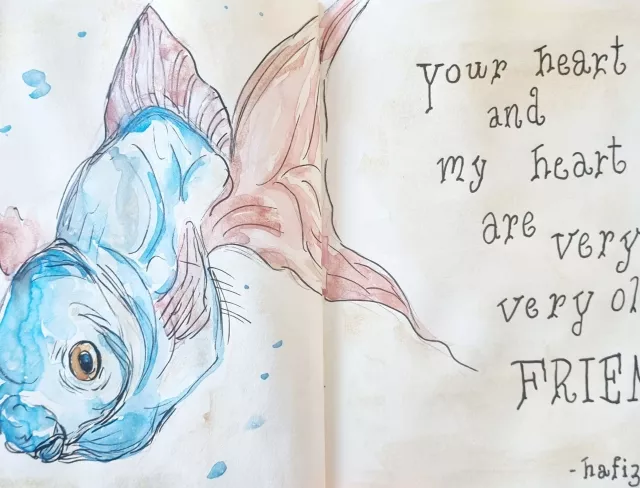 your heart
and
my heart
are very
very ol
FRIEN
-hafiz